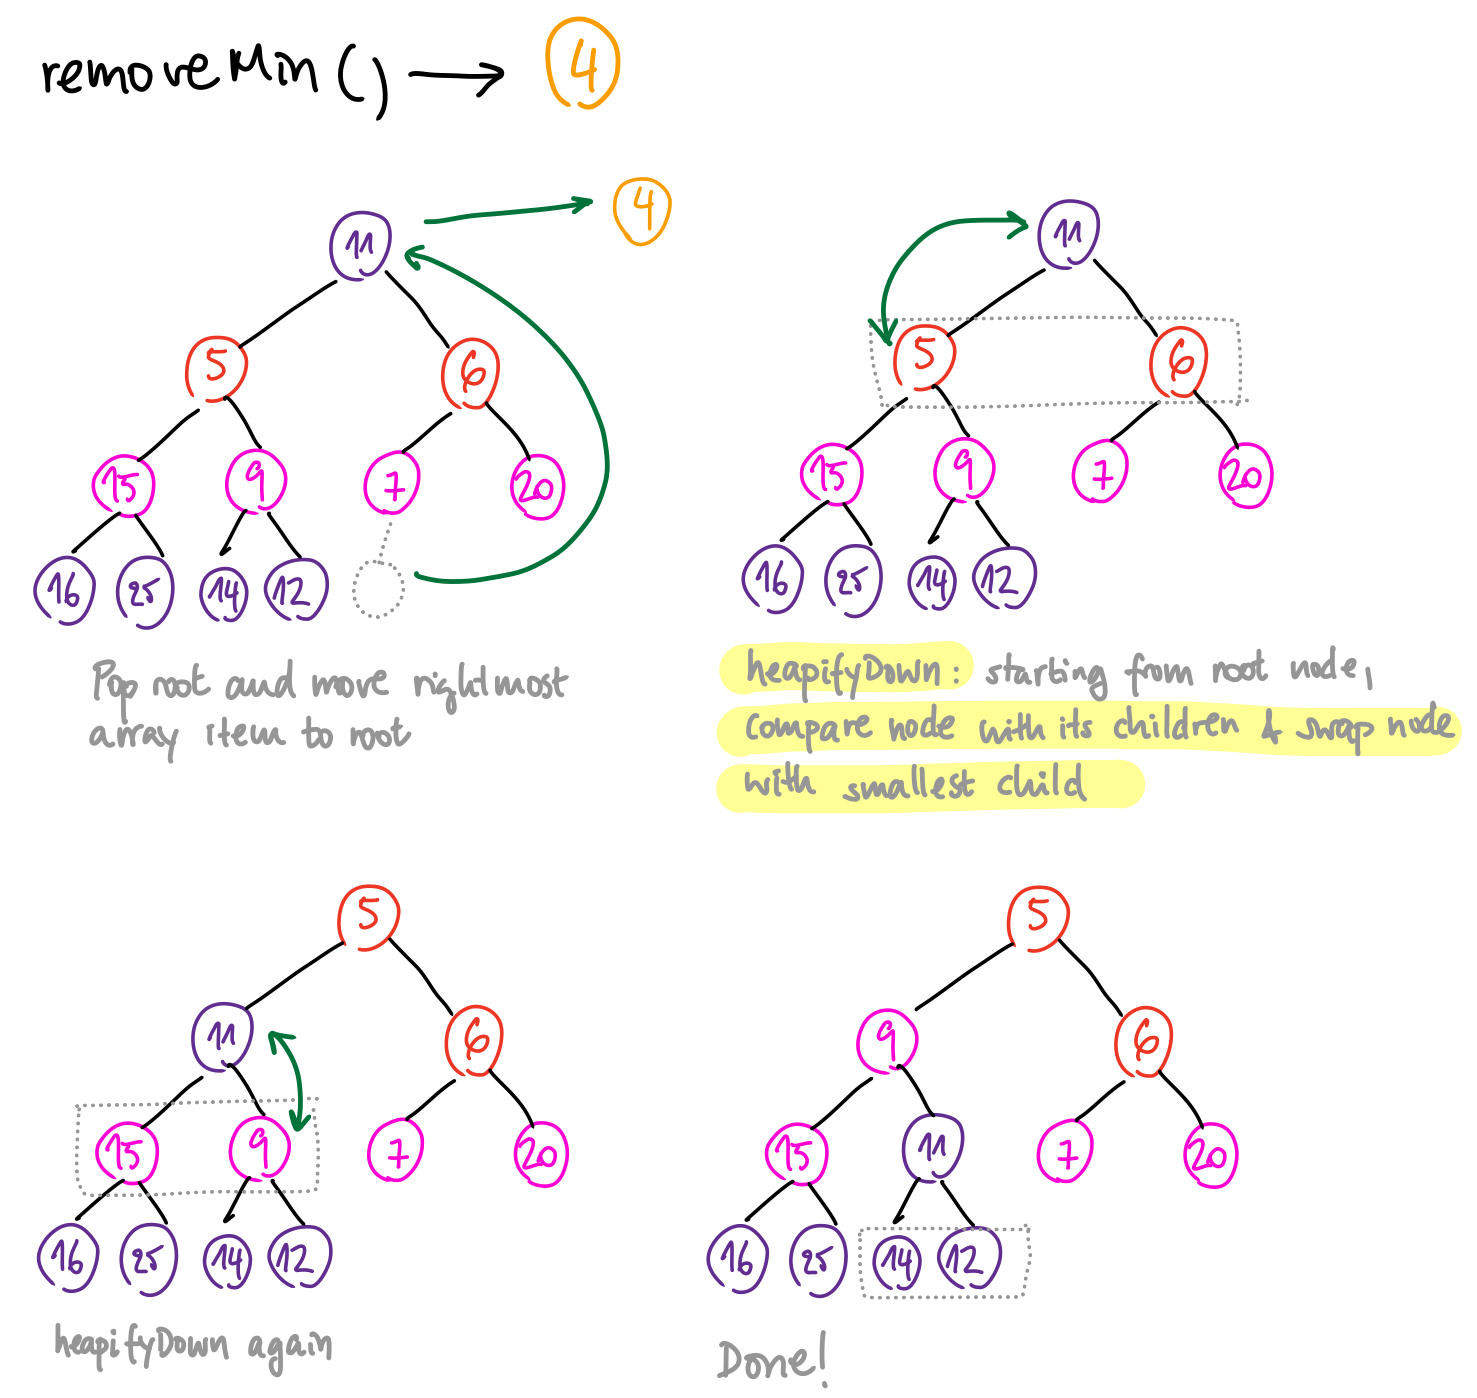 removeMin() → 4
4
11
5 6
15 9 7 20
16 25 14 12
Pop root and move rightmost
array item to root
11
5 6
15 9 7 20
16 25 14 12
heapifyDown: starting from root node,
compare node with its children & swap node
with smallest child
5
11 6
15 9 7 20
16 25 14 12
heapifyDown again
5
9 6
15 11 7 20
16 25 14 12
Done!